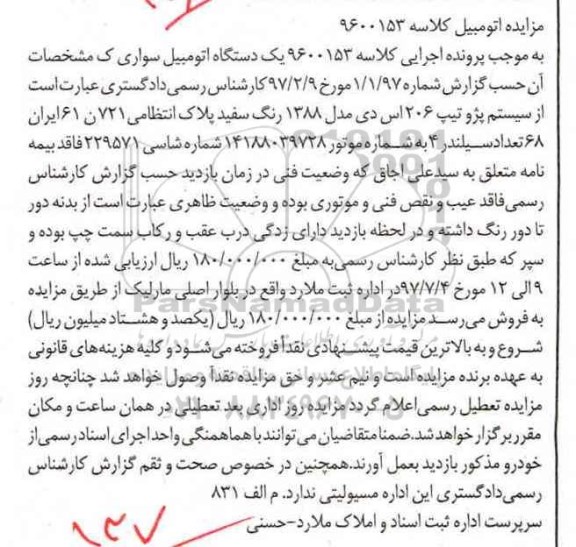 مزایده اتومبیل کلاسه ۹۶۰۰۱۵۳
به موجب پرونده اجرایی کلاسه ۹۶۰۰۱۵۳ یک دستگاه اتومبیل سواری ک مشخصات
آن حسب گزارش شماره ۱/۱/۹۷ مورخ ۹۷/۲/۹ کارشناس رسمی دادگستری عبارت است
از سیستم پژو تیپ ۲۰۶ اس دی مدل ۱۳۸۸ رنگ سفید پلاک انتظامی ۷۲۱ ن ۶۱ ایران
۶۸ تعداد سیلندر ۴ به شماره موتور ۱۴۱۸۸۰۳۹۷۲۸ شماره شاسی ۲۲۹۵۷۱ فاقد بیمه
نامه متعلق به سیدعلی اجاق که وضعیت فنی در زمان بازدید حسب گزارش کارشناس
رسمی فاقد عیب و نقص فنی و موتوری بوده و وضعیت ظاهری عبارت است از بدنه دور
تا دور رنگ داشته و در لحظه بازدید دارای زدگی درب عقب و رکاب سمت چپ بوده و
سپر که طبق نظر کارشناس رسمی به مبلغ ۱۸۰/۰۰۰/۰۰۰ ریال ارزیابی شده از ساعت
۹ الی ۱۲ مورخ ۹۷/۷/۴ در اداره ثبت ملارد واقع در بلوار اصلی مارلیک از طریق مزایده
به فروش می رسد مزایده از مبلغ ۱۸۰/۰۰۰/۰۰۰ ریال (یکصد و هشتاد میلیون ریال)
شروع و به بالاترین قیمت پیشنهادی نقدا فروخته می شود و کلیه هزینه های قانونی
به عهده برنده مزایده است و نیم عشر و حق مزایده نقدا وصول خواهد شد چنانچه روز
مزایده تعطیل رسمی اعلام گردد مزایده روز اداری بعد تعطیلی در همان ساعت و مکان
مقرر برگزار خواهد شد. ضمنا متقاضیان می توانند با هماهنگی واحد اجرای اسناد رسمی از
خودرو مذکور بازدید بعمل آورند. همچنین در خصوص صحت و ثقم گزارش کارشناس
رسمی دادگستری این اداره مسیولیتی ندارد. م الف ۸۳۱
سرپرست اداره ثبت اسناد و املاک ملارد-حسنی
۱۳۷
ParsNamadData